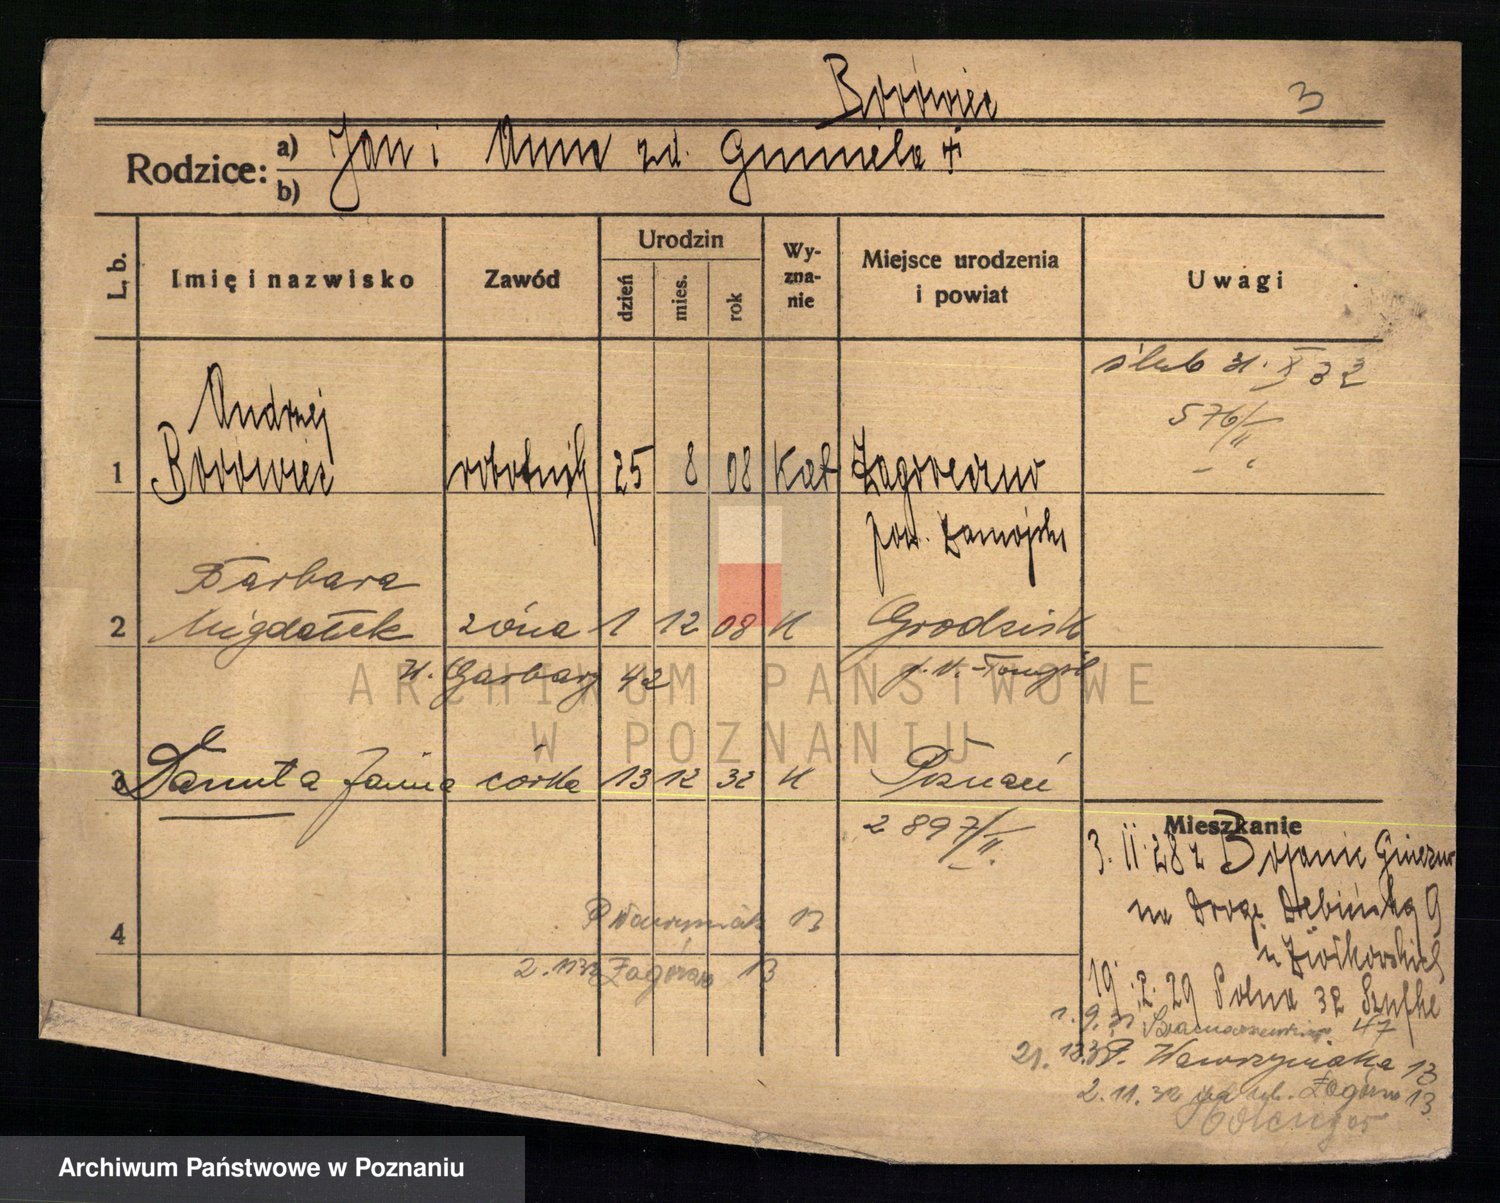 Borówiec
3
Rodzice: a) Jan i Anna zd. Gumiela
b)
L. b.
Imię i nazwisko
Zawód
Urodzin
dzień
mies.
rok
Wy-
zna-
nie
Miejsce urodzenia
i powiat
Uwagi
ślub 31. X 32
576/II
1 Andrzej
Borówiec robotnik 25 8 08 Kat
pow. Zamojski
2 Barbara
Migdałek żona 1 12 08 K Grodzisk
Garbary 42
3 Danuta Janina córka 13 12 32 K Poznań
2897/II.
Mieszkanie
3. II. 28 z Bojanic Gniezno
na Drogę Dębińską 9
u Ziółkowskich
19. 2. 29 Polna 32
4
P. Wawrzyniaka 13
2.11.32 Zagórze 13
1. 9. 31 47
21. P. Wawrzyniaka 13
2. 11. 32 Zagórze 13
ARCHIWUM PAŃSTWOWE
W POZNANIU
Archiwum Państwowe w Poznaniu